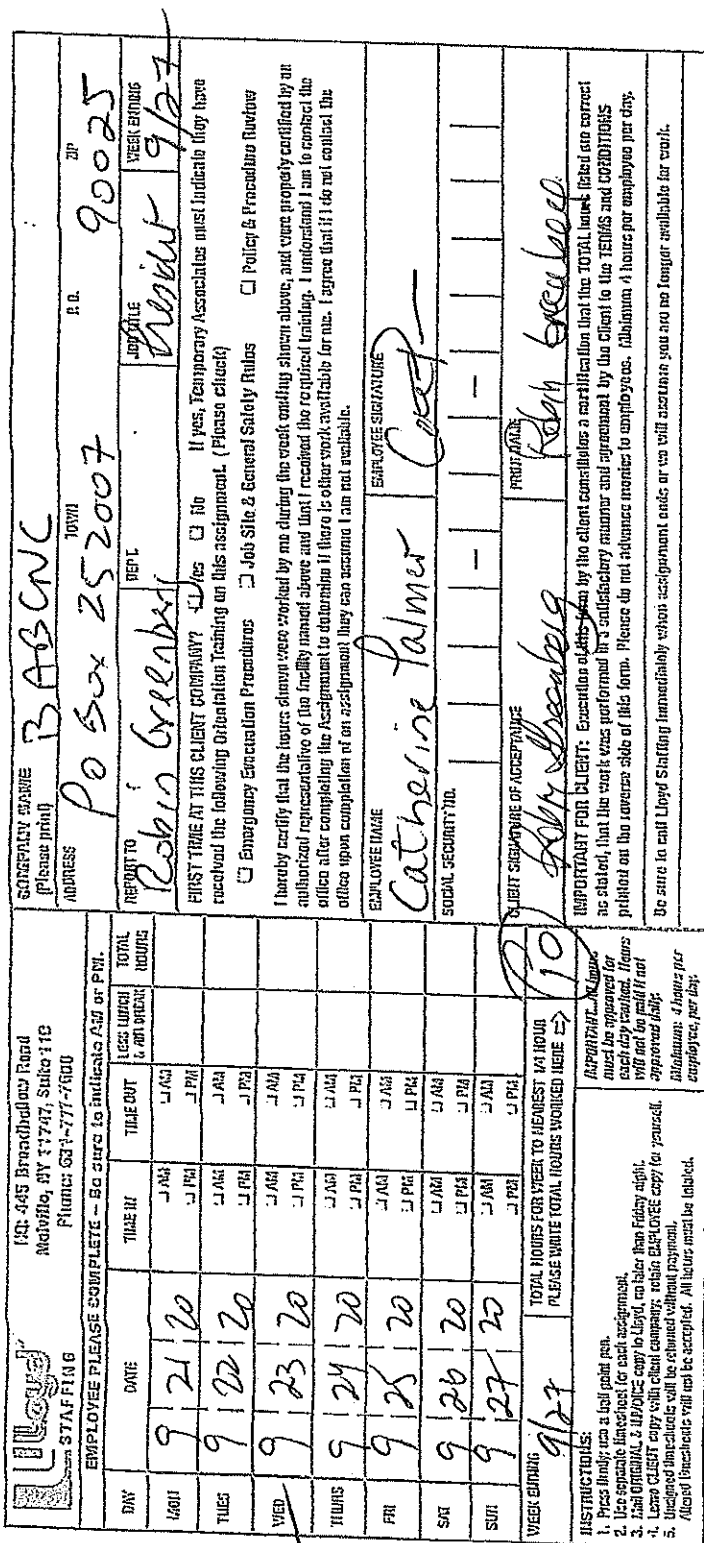 Lloyd
STAFFING
HQ: 445 Broadhollow Road
Melville, NY 11747, Suite 119
Phone: 631-777-7600
EMPLOYEE PLEASE COMPLETE – Be sure to indicate AM or PM.
DAY DATE TIME IN TIME OUT LESS LUNCH & ANY BREAK TOTAL HOURS
MON 9 21 20 AM PM AM PM
TUES 9 22 20 AM PM AM PM
WED 9 23 20 AM PM AM PM
THURS 9 24 20 AM PM AM PM
FRI 9 25 20 AM PM AM PM
SAT 9 26 20 AM PM AM PM
SUN 9 27 20 AM PM AM PM
WEEK ENDING 9/27
TOTAL HOURS FOR WEEK TO NEAREST 1/4 HOUR
PLEASE WRITE TOTAL HOURS WORKED HERE => 10
INSTRUCTIONS:
1. Press firmly; use a ball point pen.
2. Use separate timesheet for each assignment.
3. Mail ORIGINAL & INVOICE copy to Lloyd, no later than Friday night.
4. Leave CLIENT copy with client company; retain EMPLOYEE copy for yourself.
5. Unsigned timesheets will be returned without payment.
Altered timesheets will not be accepted. All hours must be totaled.
IMPORTANT...All hours
must be approved for
each day worked. Hours
will not be paid if not
approved daily.
Minimum: 4 hours per
employee, per day.
COMPANY NAME
(Please print) BABCNC
ADDRESS TOWN P.O. ZIP
PO Box 252007 90025
REPORT TO DEPT. JOB TITLE WEEK ENDING
Robin Greenberg President 9/27
FIRST TIME AT THIS CLIENT COMPANY? Yes No If yes, Temporary Associates must indicate they have
received the following Orientation Training on this assignment. (Please check)
Emergency Evacuation Procedures Job Site & General Safety Rules Policy & Procedure Review
I hereby certify that the hours shown were worked by me during the week ending shown above, and were properly certified by an
authorized representative of the facility named above and that I received the required training. I understand I am to contact the
office after completing the Assignment to determine if there is other work available for me. I agree that if I do not contact the
office upon completion of an assignment they can assume I am not available.
EMPLOYEE NAME EMPLOYEE SIGNATURE
Catherine Palmer
SOCIAL SECURITY NO. – –
CLIENT SIGNATURE OF ACCEPTANCE PRINT NAME
Robin Greenberg Robin Greenberg
IMPORTANT FOR CLIENT: Execution of this form by the client constitutes a certification that the TOTAL hours listed are correct
as stated, that the work was performed in a satisfactory manner and agreement by the Client to the TERMS and CONDITIONS
printed on the reverse side of this form. Please do not advance monies to employees. Minimum 4 hours per employee per day.
Be sure to call Lloyd Staffing immediately when assignment ends or we will assume you are no longer available for work.